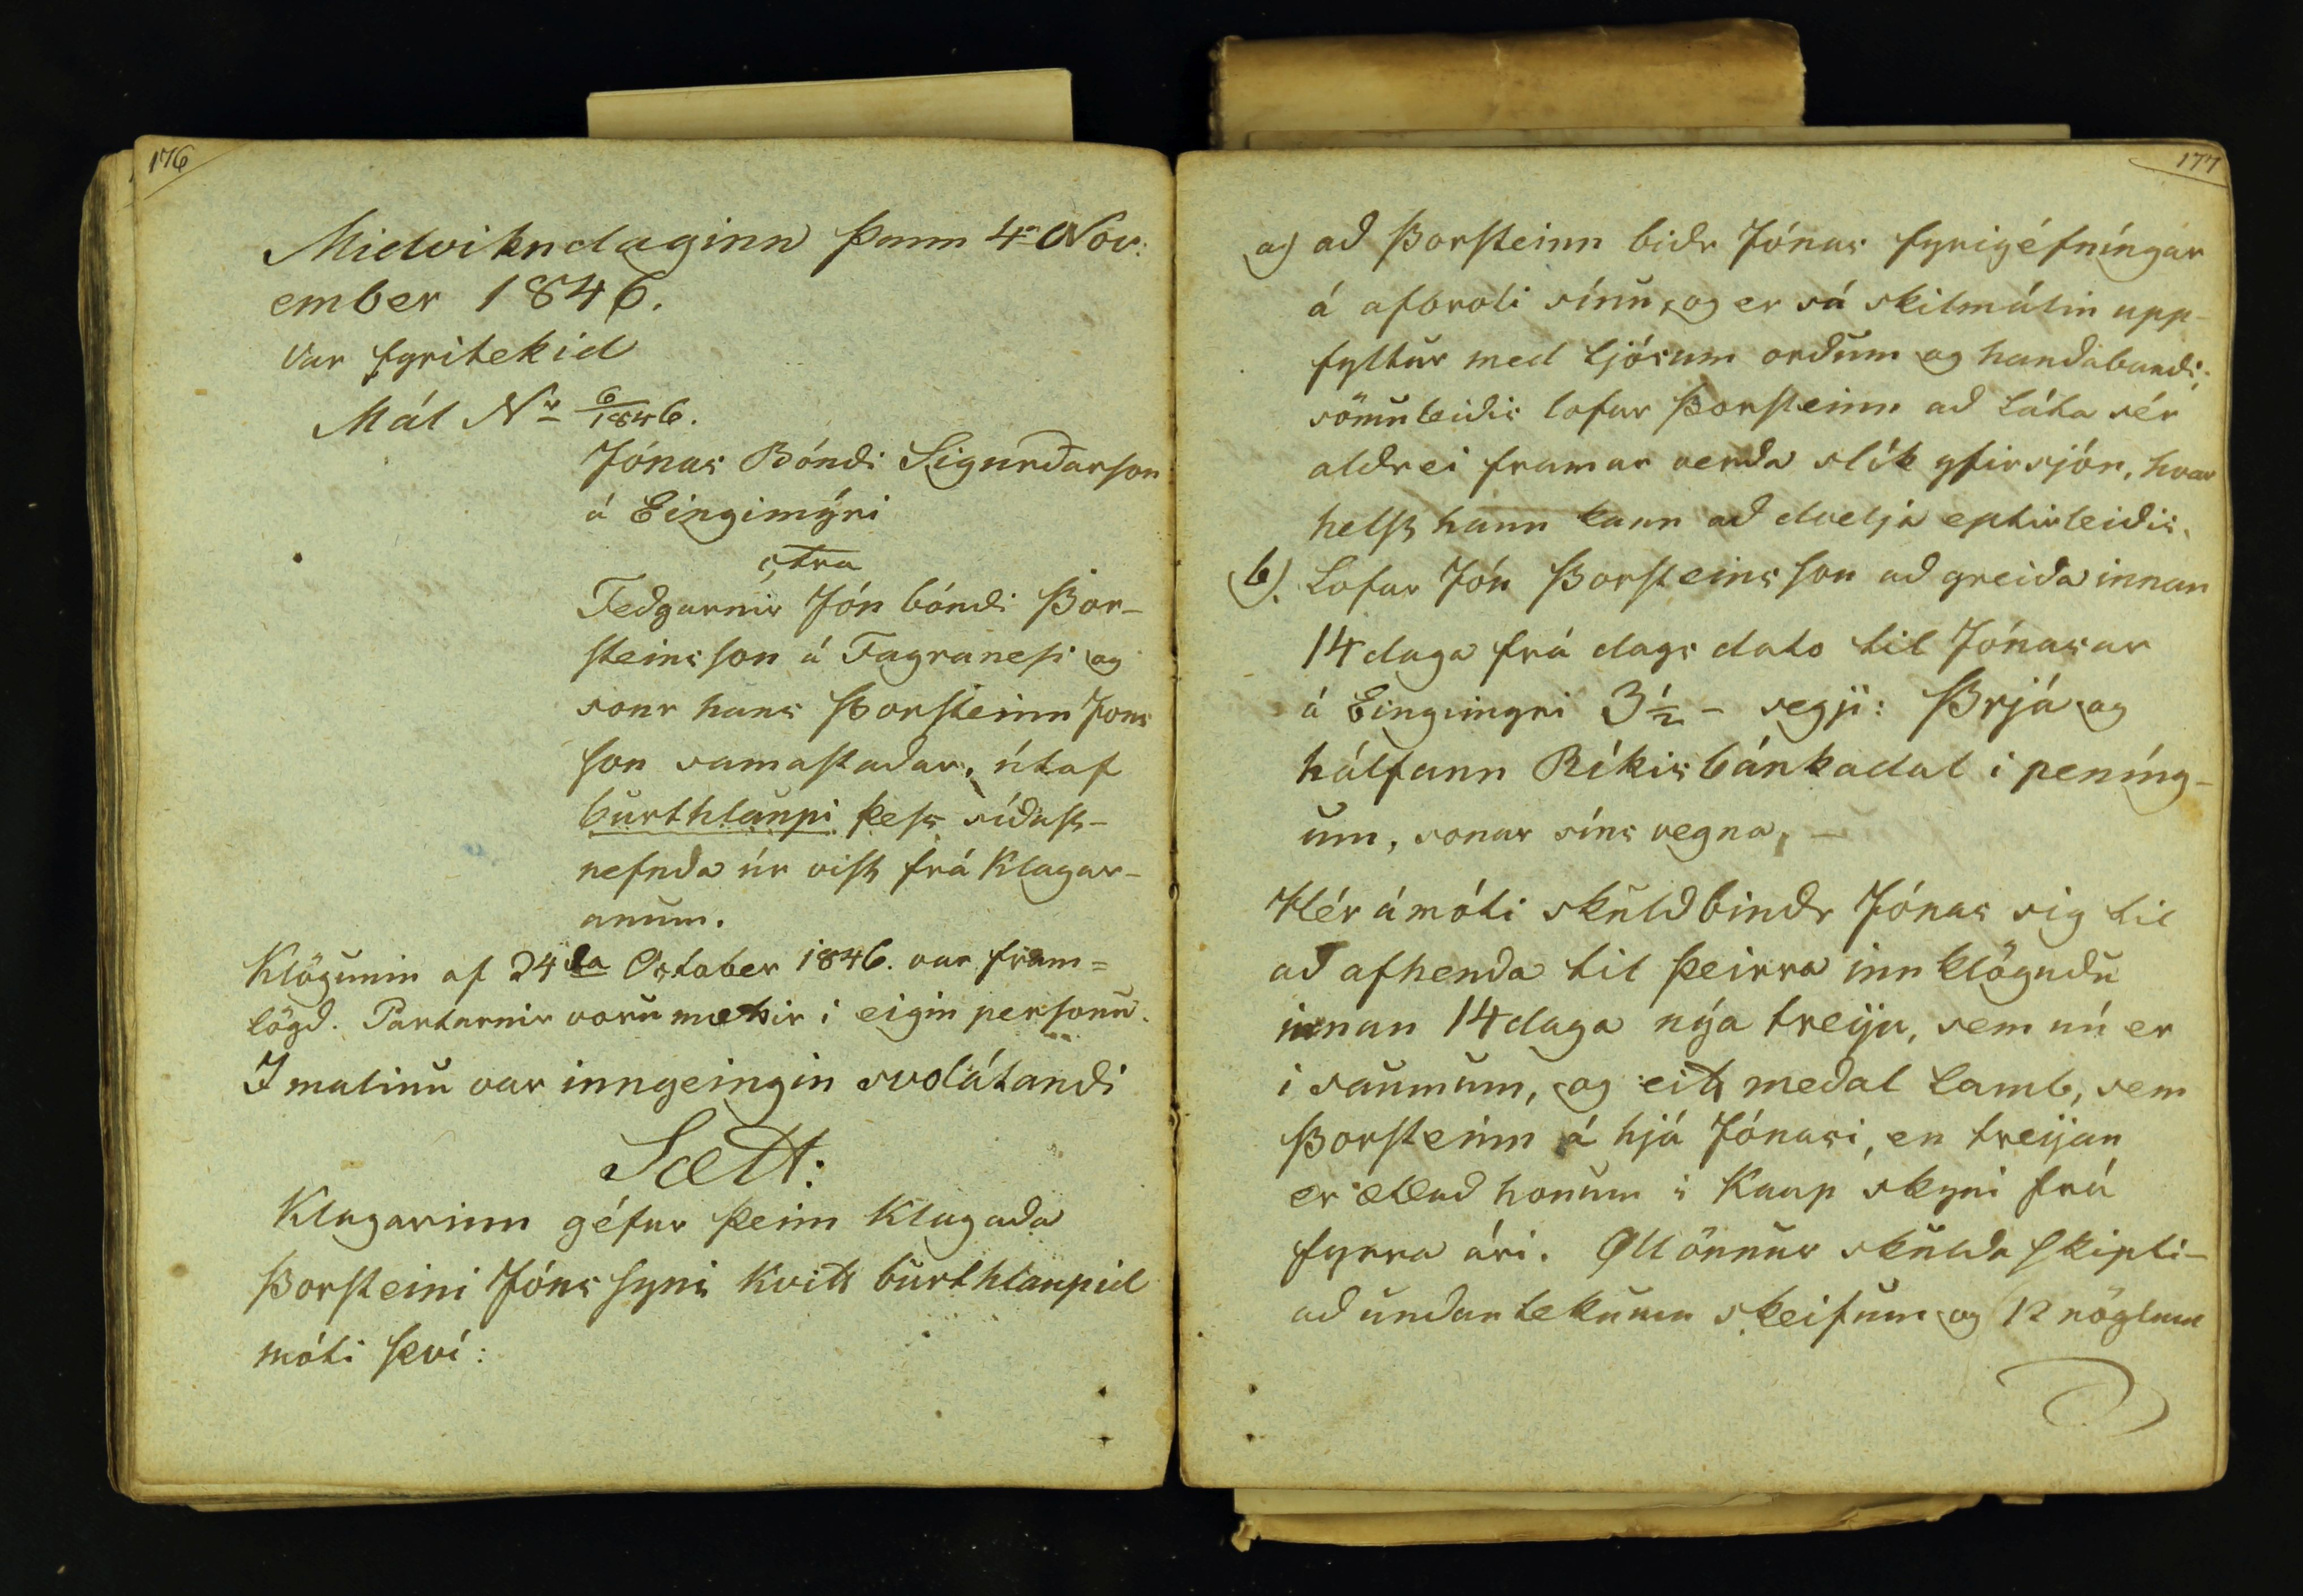 176
Midvikudaginn þann 4a Nov:
ember 1846.
var fyritekid
Mál Nr 6/1846.
Jónas Bóndi Sigurðarson
á Eingimýri
ctra
Feðgarnir Jón bóndi Þor-
steinsson á Fagranesi og
sonr hans Þorsteinn Jons
son samastaðar, útaf
burthlaupi þess síðast-
nefnda úr vist frá Klagar-
anum.
Klögunin af 24da October 1846. var fram=
lögð. Partarnir voru mættir i eigin persónu.
I malinu var inngeingin svolátandi
Sætt:
Klagarinn géfur þeim Klagaða
Þorsteini Jónssyni kvitt burthlaupid
móti því:
177
a) að Þorsteinn biðr Jónas fyrigéfníngar
á afbroti sínu, og er sá skilmálin upp-
fyltur med ljósum orðum og handabandi;
sömuleiðis lofar Þorsteinn að láta sér
aldrei framar verða slík yfirsjón, hvar
helst hann kann að dvelja eptirleiðis.
b). Lofar Jón Þorsteinsson að greiða innan
14 daga frá dags dato til Jónasar
á Eingimyri 3½ - segji: Þrjá og
hálfann Ríkisbánkadal i peníng-
um, sonar síns vegna, -
Hér ámóti skuldbindr Jónas sig til
að afhenda til þeirra innklöguðu
innan 14 daga nýa treyju, sem nú er
i saumum, og eitt meðal lamb, sem
Þorsteinn á hjá Jónasi, en treyjan
er ætluð honum i Kaup skyni frá
fyrra ári. Øll önnur skulda skipti-
að undanteknum skeifum og 12 nöglum